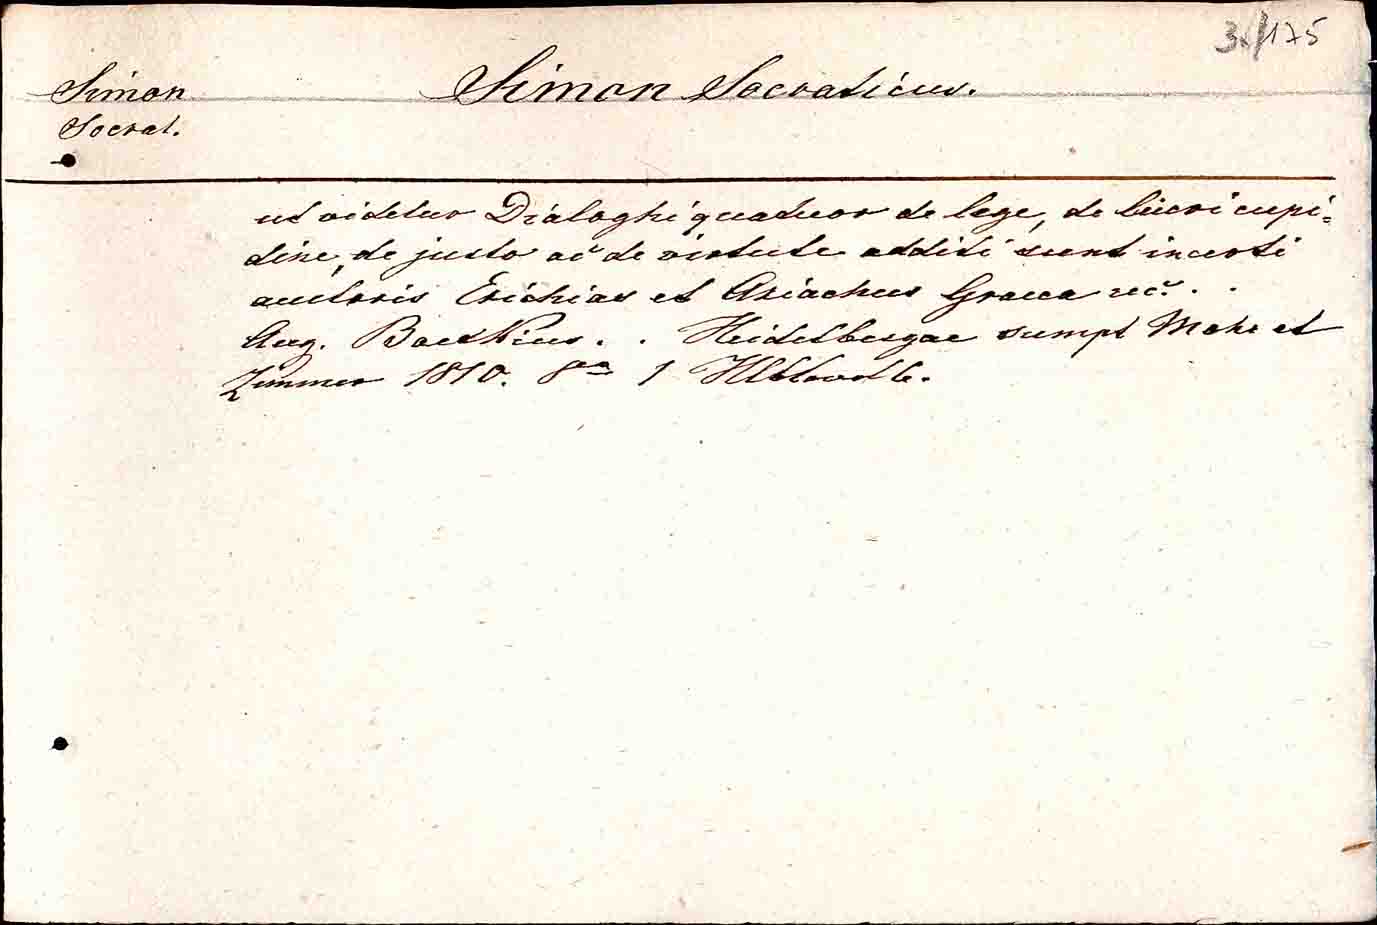 3./175
Simon
Socrat.
Simon Socraticus.
ut videtur Dialoghi quatuor de lege, de lucri cupi=
dine, de justo ac de virtute additi sunt incerti
auctoris Erichias et Axiachus Graeca rec. . .
Aug. Boeckhius. . Heidelbergae sumpt Mohr et
Zimmer 1810. 8° 1 Hlblwdb.